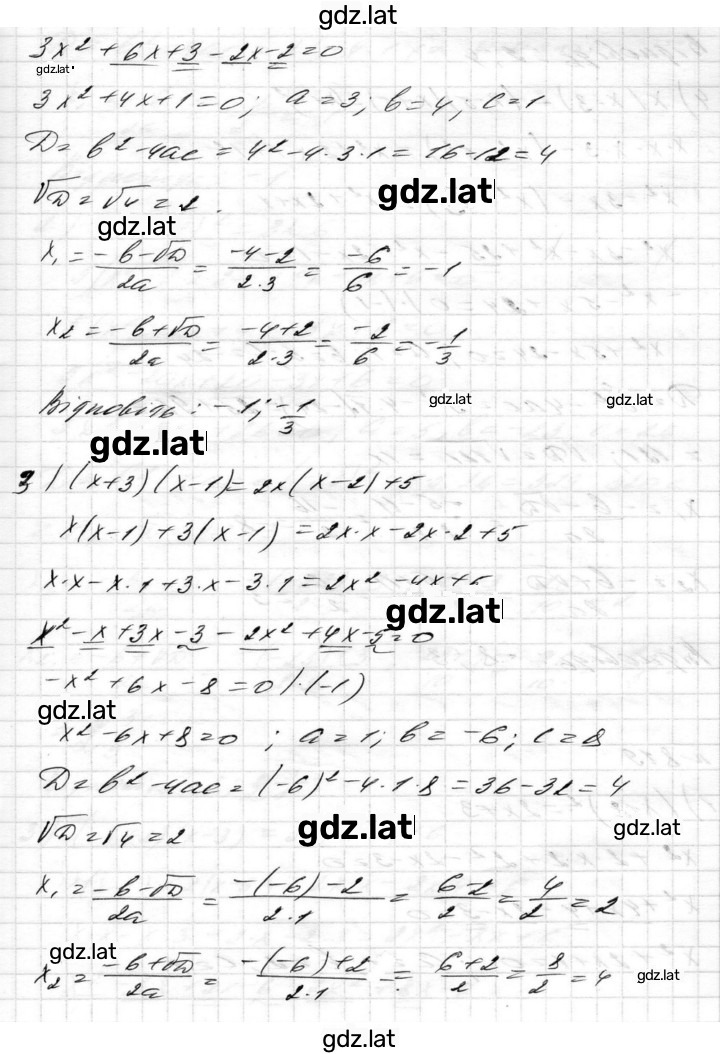 gdz.lat
3x² + 6x + 3 - 2x - 2 = 0
gdz.lat
3x² + 4x + 1 = 0; a = 3; b = 4; c = 1
D = b² - 4ac = 4² - 4·3·1 = 16 - 12 = 4
gdz.lat
√D = √4 = 2.
gdz.lat
x₁ = (-b-√D)/2a = (-4-2)/(2·3) = (-6)/6 = -1
x₂ = (-b+√D)/2a = (-4+2)/(2·3) = (-2)/6 = -1/3
Відповідь: -1; -1/3
gdz.lat
gdz.lat
gdz.lat
3) (x+3)(x-1) = 2x(x-2)+5
x(x-1) + 3(x-1) = 2x·x - 2x·2 + 5
x·x - x·1 + 3·x - 3·1 = 2x² - 4x + 5
gdz.lat
x² - x + 3x - 3 - 2x² + 4x - 5 = 0
-x² + 6x - 8 = 0 |·(-1)
gdz.lat
x² - 6x + 8 = 0; a = 1; b = -6; c = 8
D = b² - 4ac = (-6)² - 4·1·8 = 36 - 32 = 4
√D = √4 = 2
gdz.lat
gdz.lat
x₁ = (-b-√D)/2a = (-(-6)-2)/(2·1) = (6-2)/2 = 4/2 = 2
gdz.lat
x₂ = (-b+√D)/2a = (-(-6)+2)/(2·1) = (6+2)/2 = 8/2 = 4
gdz.lat
gdz.lat